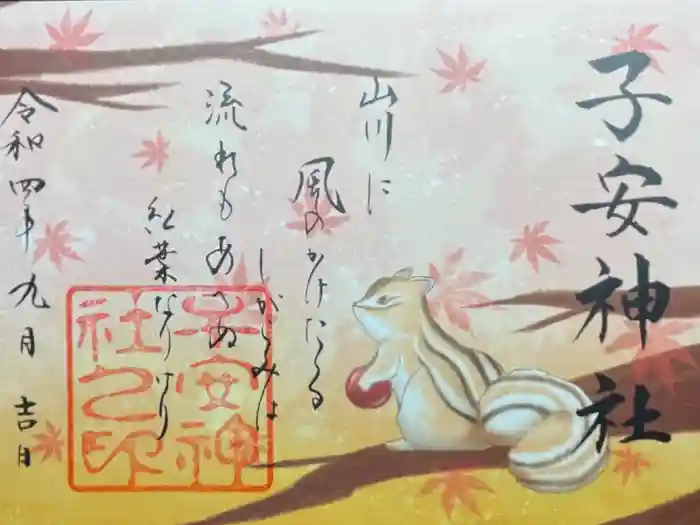 子安神社
山川に
風のかけたる
しがらみは
流れもあへぬ
紅葉なりけり
令和四年九月 吉日
子安神
社之印